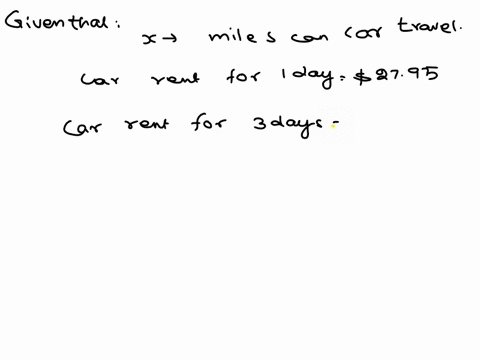 Given that:
x → miles can car travel.
Car rent for 1 day = $27.95
Car rent for 3 days =